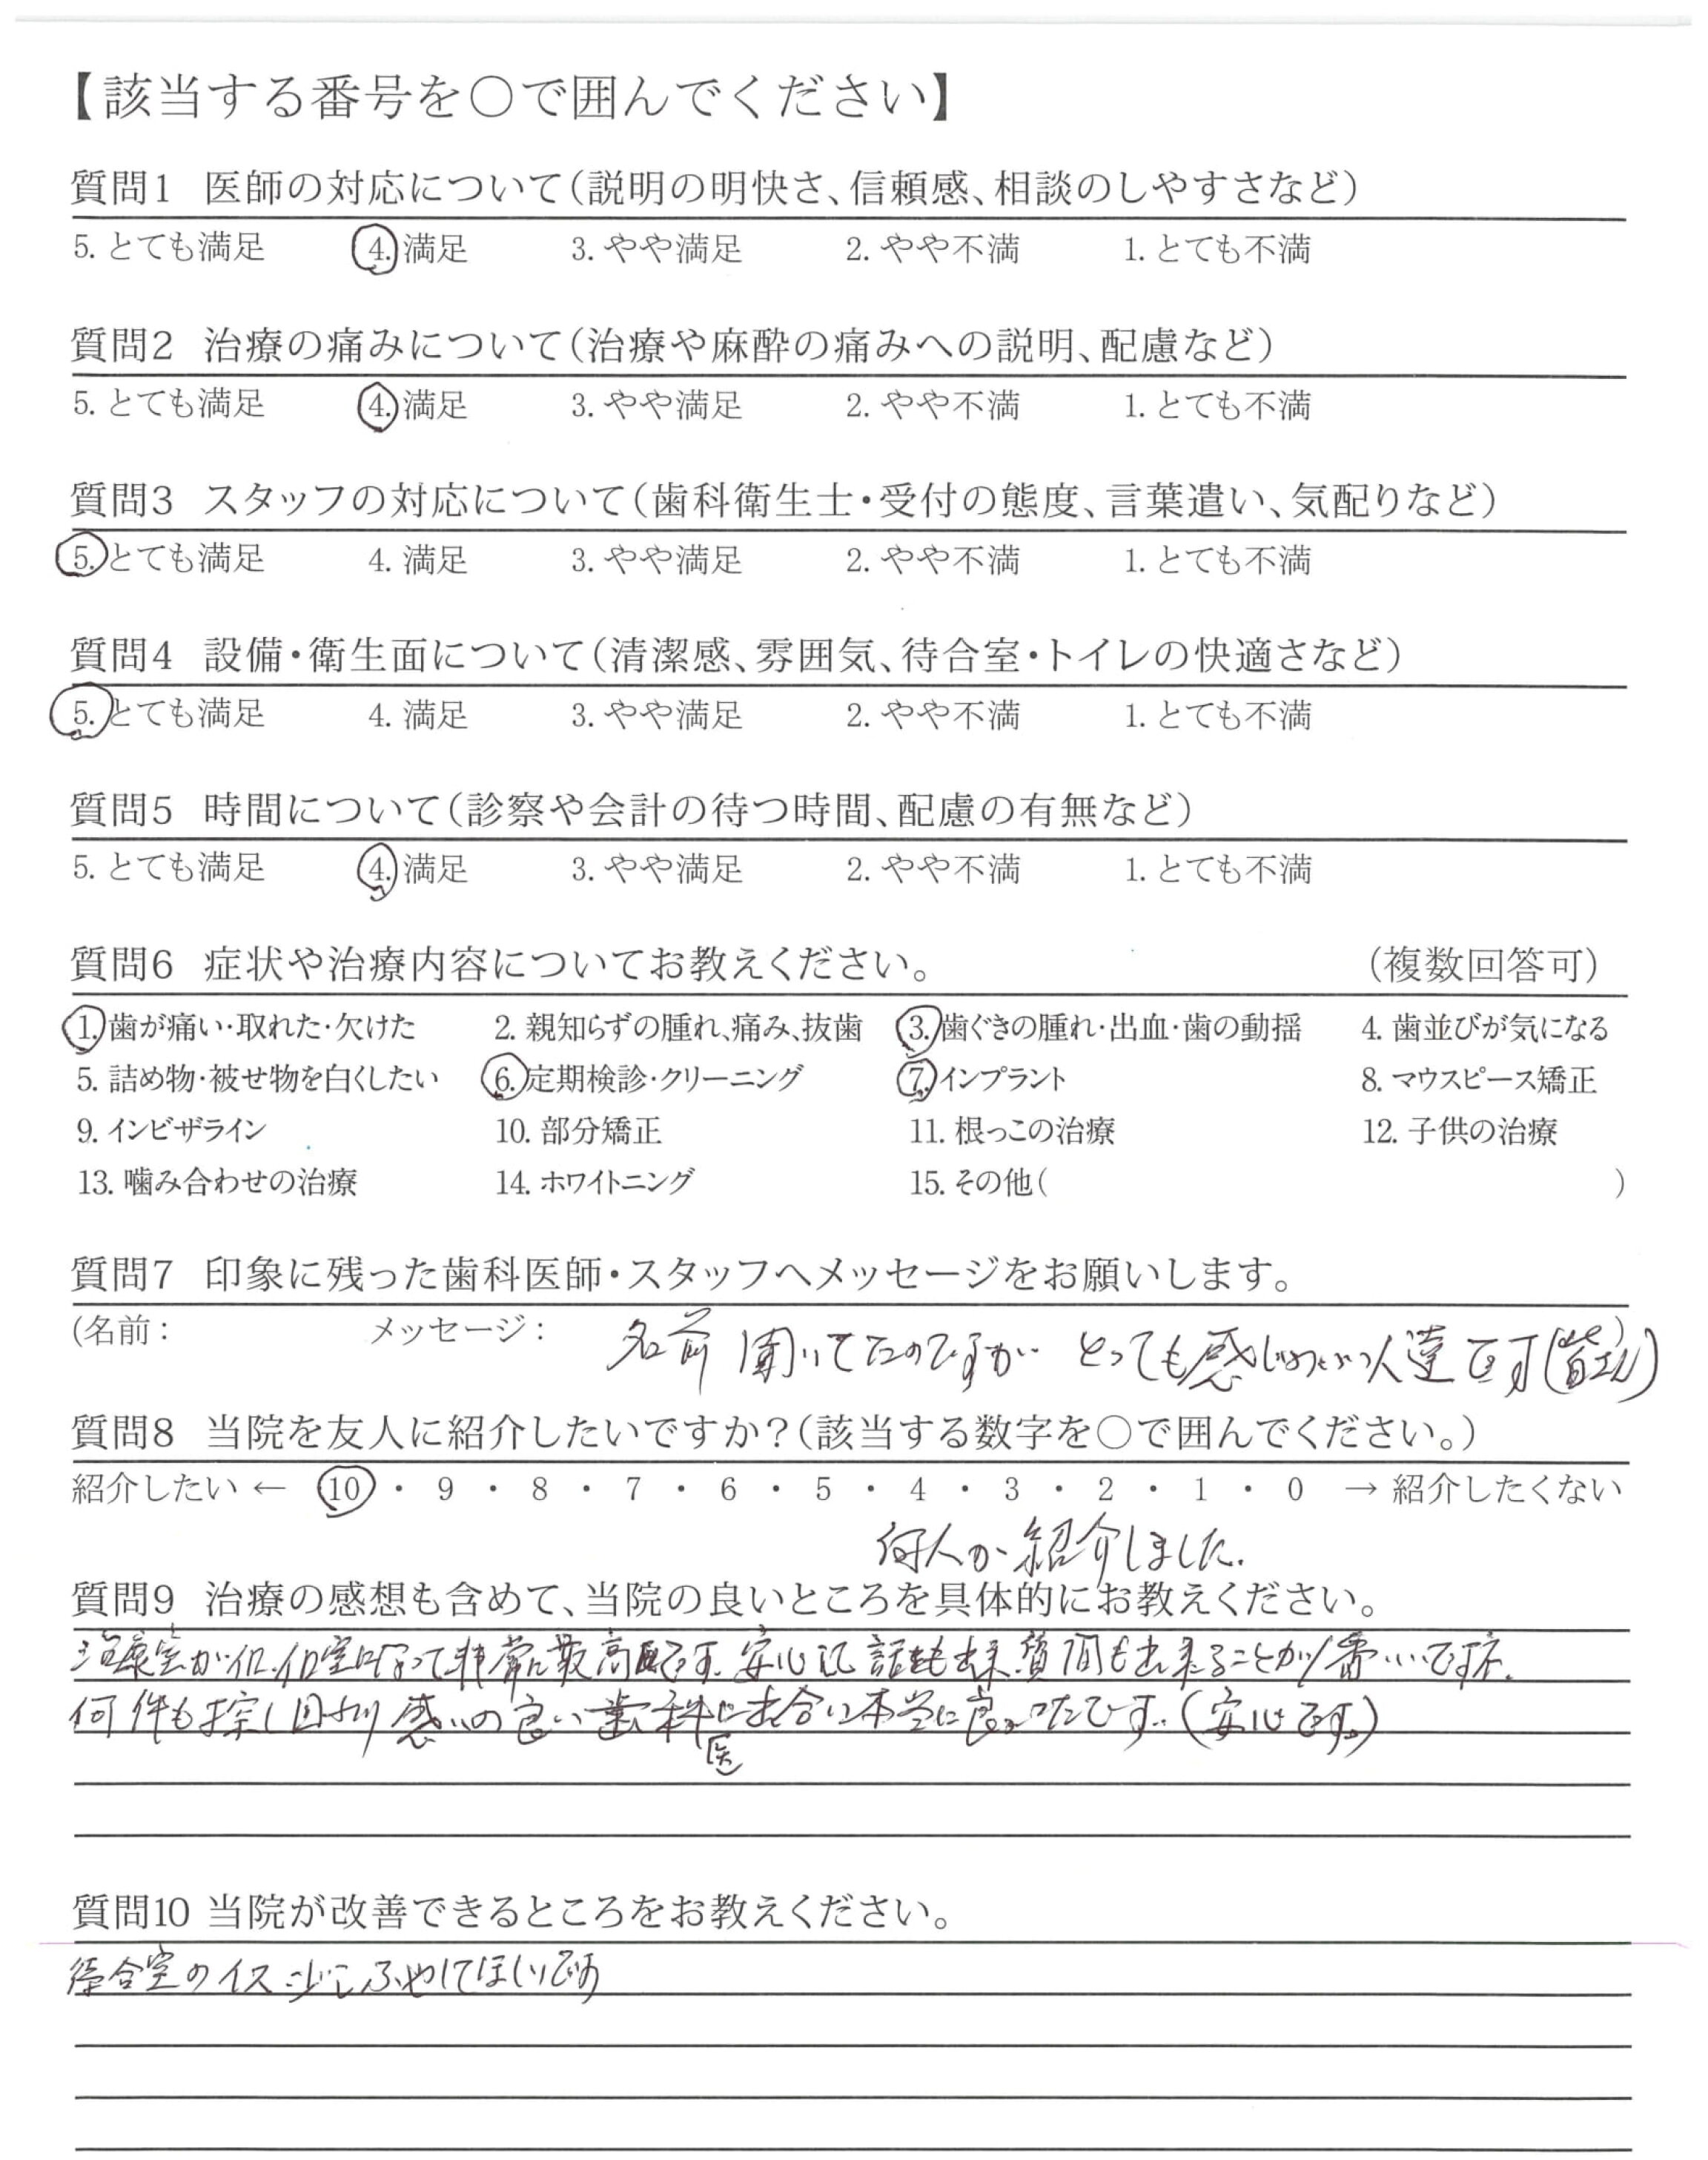 【該当する番号を○で囲んでください】
質問1 医師の対応について(説明の明快さ、信頼感、相談のしやすさなど)
5. とても満足 4. 満足 3. やや満足 2. やや不満 1. とても不満
質問2 治療の痛みについて(治療や麻酔の痛みへの説明、配慮など)
5. とても満足 4. 満足 3. やや満足 2. やや不満 1. とても不満
質問3 スタッフの対応について(歯科衛生士・受付の態度、言葉遣い、気配りなど)
5. とても満足 4. 満足 3. やや満足 2. やや不満 1. とても不満
質問4 設備・衛生面について(清潔感、雰囲気、待合室・トイレの快適さなど)
5. とても満足 4. 満足 3. やや満足 2. やや不満 1. とても不満
質問5 時間について(診察や会計の待つ時間、配慮の有無など)
5. とても満足 4. 満足 3. やや満足 2. やや不満 1. とても不満
質問6 症状や治療内容についてお教えください。 (複数回答可)
1. 歯が痛い・取れた・欠けた 2. 親知らずの腫れ、痛み、抜歯 3. 歯ぐきの腫れ・出血・歯の動揺 4. 歯並びが気になる
5. 詰め物・被せ物を白くしたい 6. 定期検診・クリーニング 7. インプラント 8. マウスピース矯正
9. インビザライン 10. 部分矯正 11. 根っこの治療 12. 子供の治療
13. 噛み合わせの治療 14. ホワイトニング 15. その他( )
質問7 印象に残った歯科医師・スタッフへメッセージをお願いします。
(名前: メッセージ: 名前 聞いてたのですが とっても感じ 人達です(皆さん)
質問8 当院を友人に紹介したいですか?(該当する数字を○で囲んでください。)
紹介したい ← 10 ・ 9 ・ 8 ・ 7 ・ 6 ・ 5 ・ 4 ・ 3 ・ 2 ・ 1 ・ 0 → 紹介したくない
何人か紹介しました.
質問9 治療の感想も含めて、当院の良いところを具体的にお教えください。
治療室が個、個室になって非常に最高です. 安心して話も出来質問も出来ることが1番いいですね.
何件も探し回り 感じの良い歯科医に出合い本当に良かったです. (安心です。)
質問10 当院が改善できるところをお教えください。
待合室のイス少しふやしてほしいです